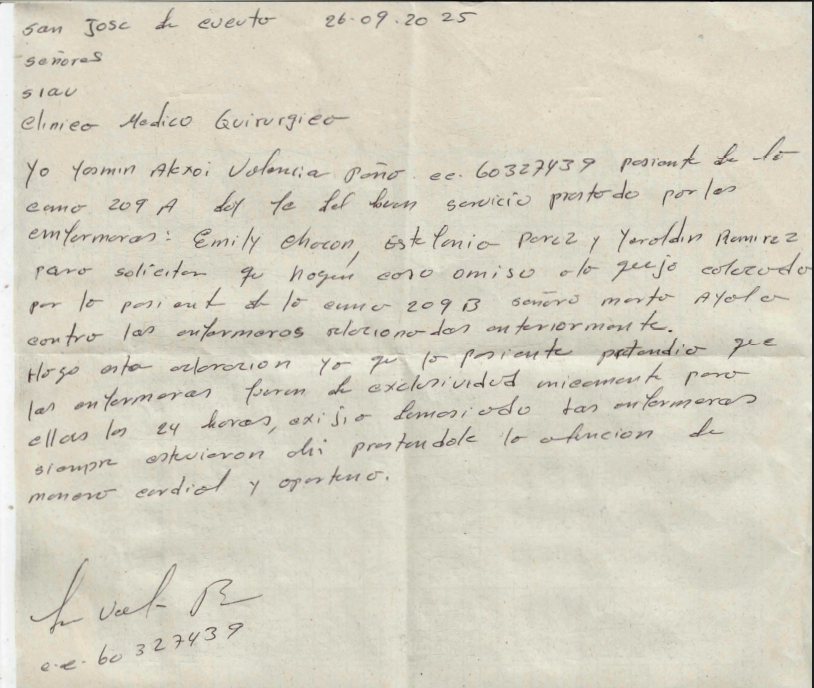 San Jose de cucuta 26.09.2025
señores
SIAU
Clinica Medico Quirurgica
Yo Yasmin Valencia cc. 60327439 pasiente de la
cama 209 A doy fe del buen servicio prestado por las
enfermeras: Emily chacon, Estefania Perez y Yeraldin Ramirez
para solicitar que hagan caso omiso a la queja colocada
por la pasiente de la cama 209 B señora marta Ayala
contra las enfermeras relacionadas anteriormente.
Hago esta aclaracion ya que la pasiente pretendio que
las enfermeras fueran de exclusividad unicamente para
ellas las 24 horas, exijio demasiado las enfermeras
siempre estuvieron ahi prestandole la atencion de
manera cordial y oportuna.
c.c. 60327439